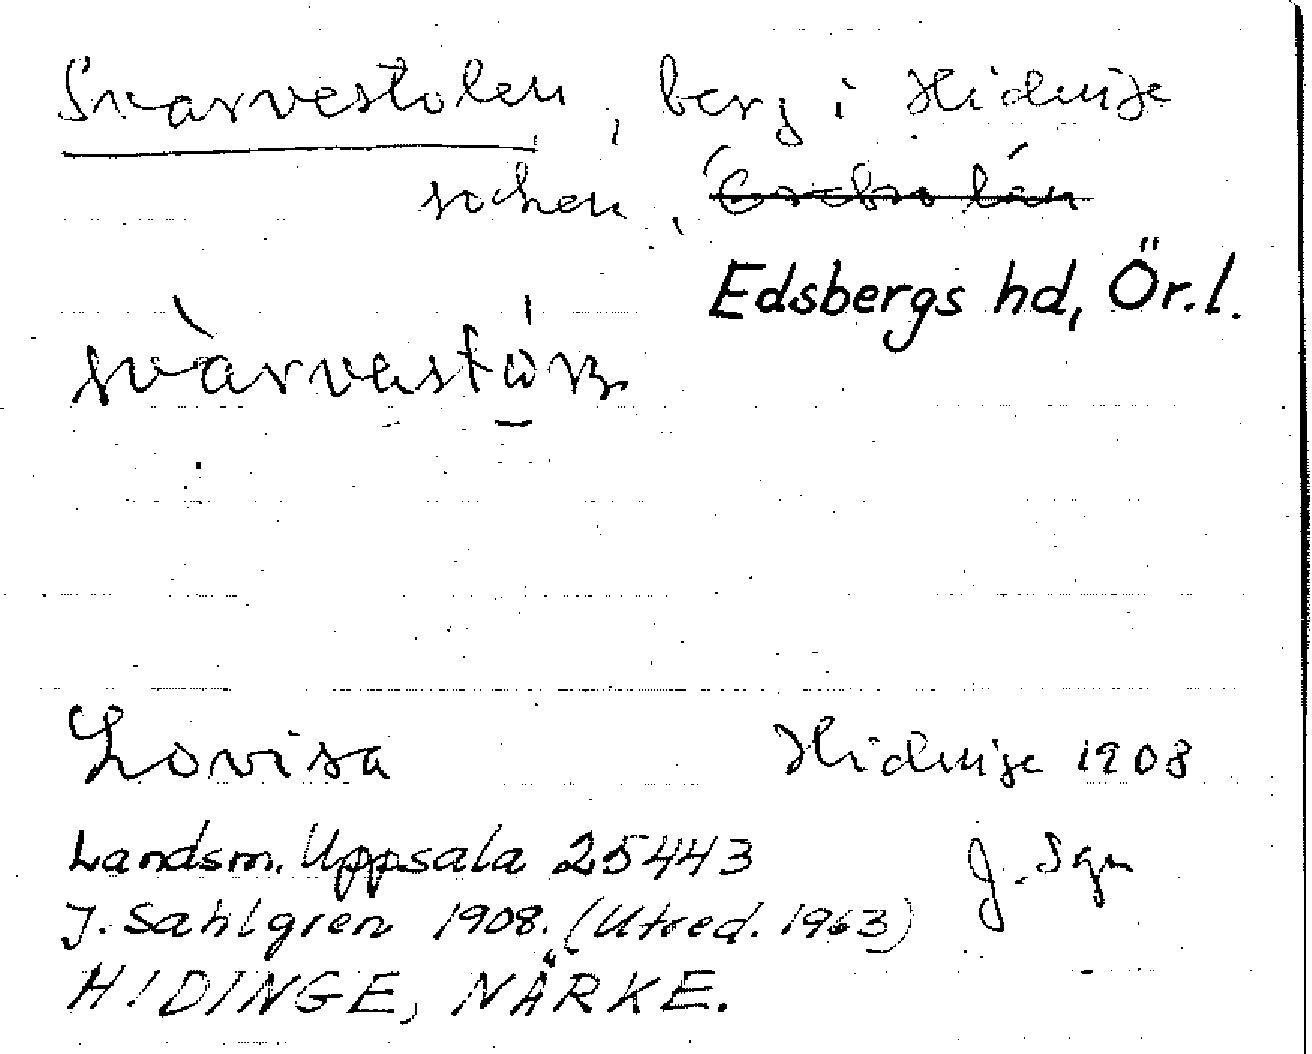 Svarvestolen, berg i Hidinge
socken, Örebro län
Edsbergs hd, Ör.l.
Lovisa Hidinge 1908
Landsm. Uppsala 25443 J. Sgn
J. Sahlgren 1908. (Utred. 1963)
HIDINGE, NÄRKE.